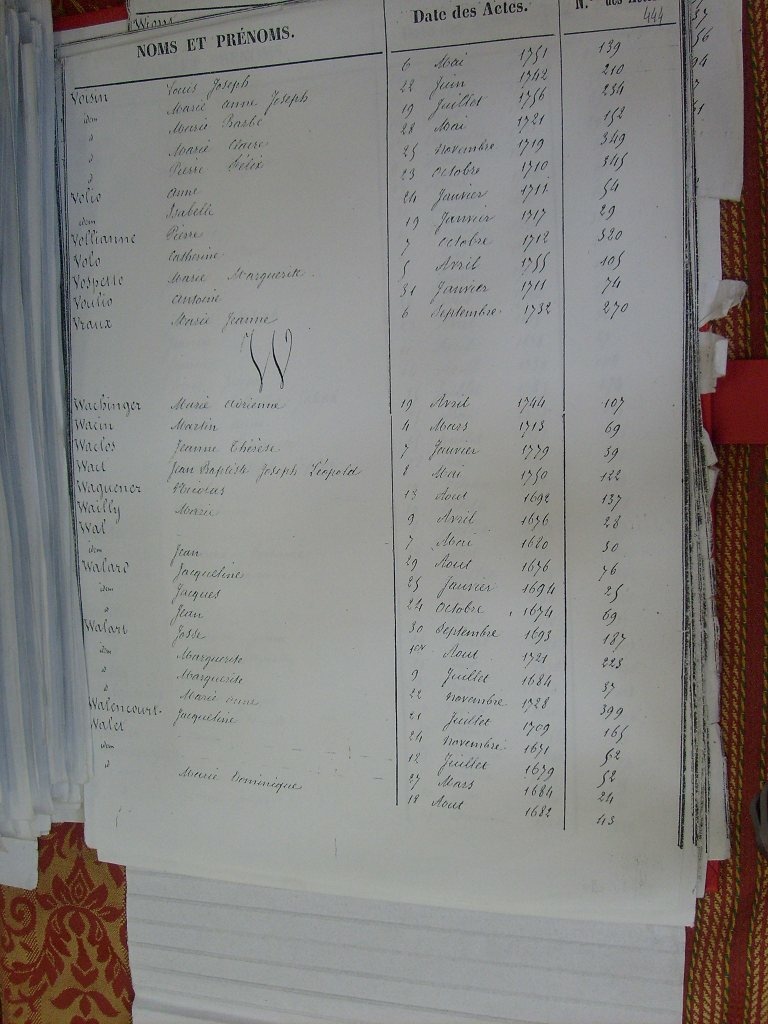 Wions
NOMS ET PRÉNOMS. Date des Actes. N.os des Actes
444
Voisin Louis Joseph 6 Mai 1751 139
idem Marie Anne Joseph 22 Juin 1742 210
d Marie Barbe 19 Juillet 1756 234
d Marie Claire 28 Mai 1721 152
d Pierre Félix 25 novembre 1719 349
Volio Anne 23 octobre 1710 345
idem Isabelle 24 Janvier 1711 54
Vollianne Pierre 19 Janvier 1717 29
Volo Catherine 7 octobre 1712 320
Vospette Marie Marguerite 5 Avril 1755 105
Voulio Antoine 31 Janvier 1711 74
Vraux Marie Jeanne 6 Septembre 1732 270
W
Wachinger Marie Adrienne 19 Avril 1744 107
Wacin Martin 4 Mars 1713 69
Waclos Jeanne Thérèse 7 Janvier 1779 39
Wael Jean Baptiste Joseph Léopold 8 Mai 1750 122
Waguener Nicolas 13 Aout 1692 137
Wailly Marie 9 Avril 1676 28
Wal 7 Mai 1680 30
idem Jean 29 Aout 1676 76
Walare Jacqueline 25 Janvier 1694 25
idem Jacques 24 Octobre 1674 69
d Jean 30 Septembre 1693 187
Walart Josse 1er Aout 1721 223
idem Marguerite 9 Juillet 1684 37
d Marguerite 22 novembre 1728 399
d Marie Anne 21 Juillet 1709 165
Walencourt Jacqueline 24 novembre 1671 52
Walet 12 Juillet 1679 52
idem 27 Mars 1684 24
d Marie Dominique 18 Aout 1682 43